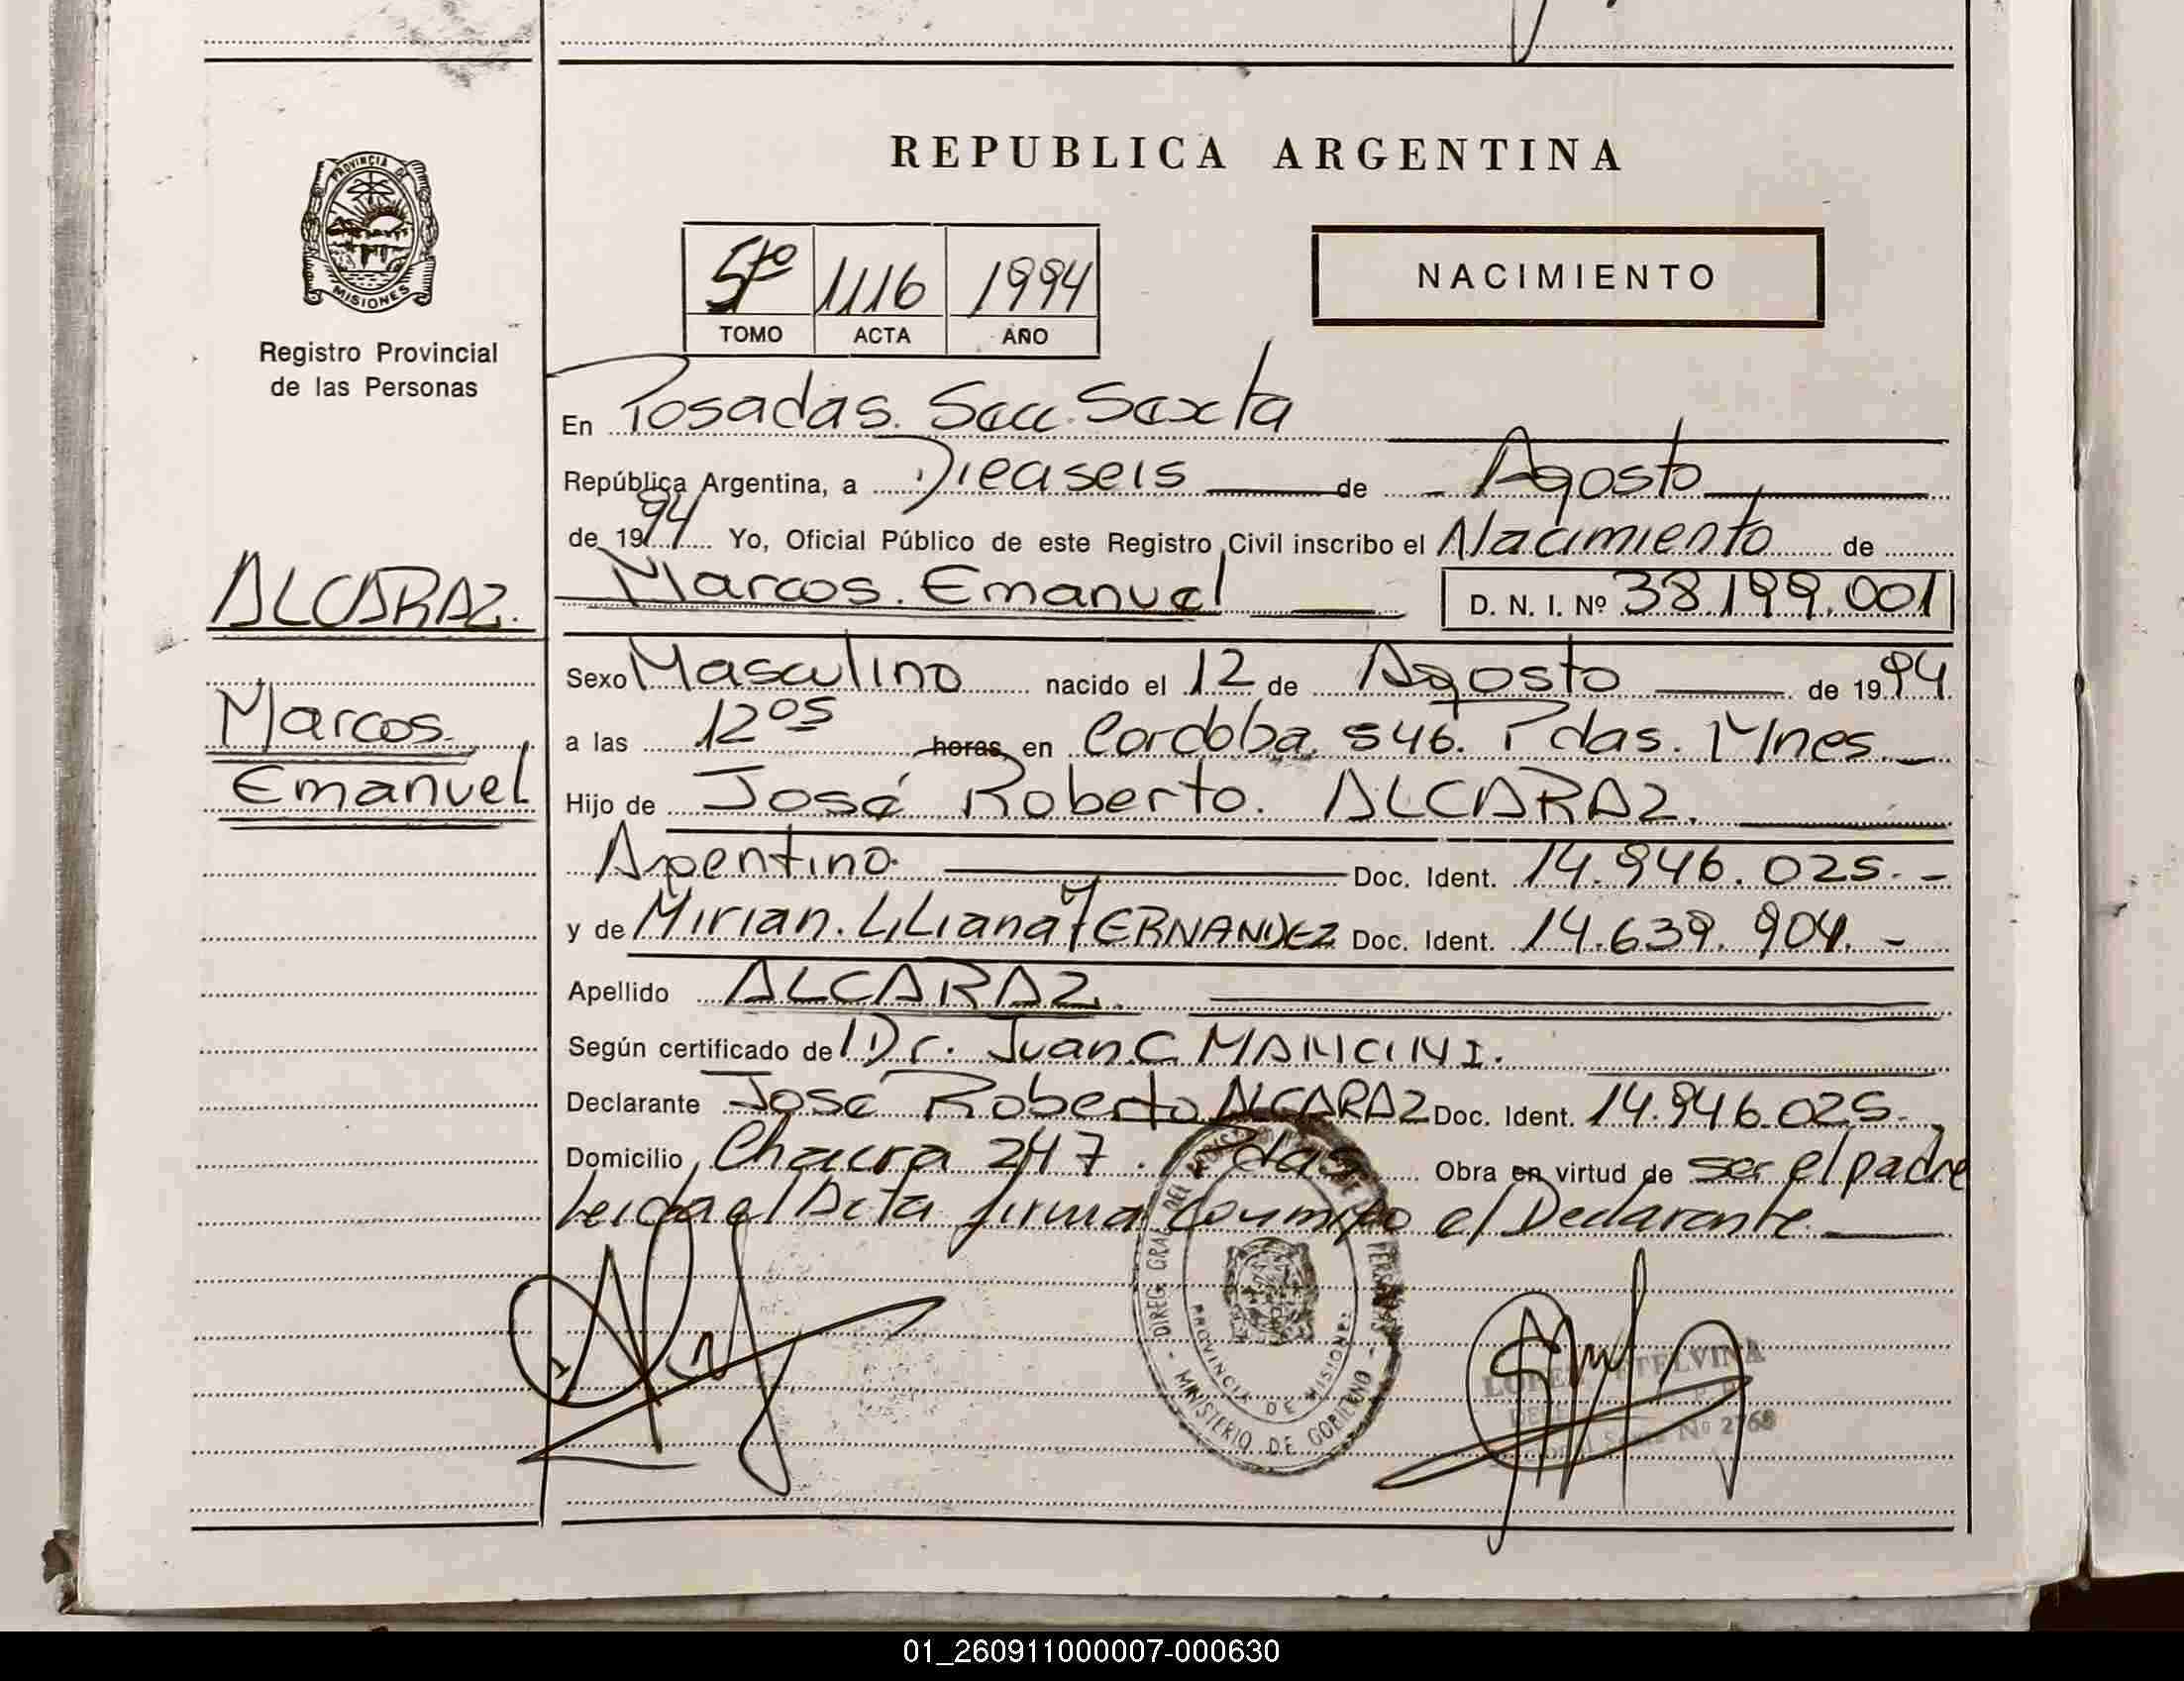 REPUBLICA ARGENTINA
PROVINCIA DE
MISIONES
Registro Provincial
de las Personas
5to 1116 1994
TOMO ACTA AÑO
NACIMIENTO
En Posadas. Secc. Sexta
República Argentina, a Dieciseis de Agosto
de 1994 Yo, Oficial Público de este Registro Civil inscribo el Nacimiento de
Marcos. Emanuel D. N. I. Nº 38.199.001
ALCARAZ.
Marcos.
Emanuel
Sexo Masculino nacido el 12 de Agosto de 1994
a las 12 05 horas, en Cordoba. 546. Pdas. Mnes.
Hijo de José Roberto. ALCARAZ.
Argentino. Doc. Ident. 14.946.025.-
y de Mirian. Liliana FERNANDEZ Doc. Ident. 14.639.904.-
Apellido ALCARAZ.
Según certificado de Dr. Juan C. MANCINI.
Declarante José Roberto ALCARAZ Doc. Ident. 14.946.025.
Domicilio Chacra 247. Pdas Obra en virtud de ser el padre
Leida el Acta firma conmigo el Declarante
DIREC. GRAL. DEL
PROVINCIA DE MISIONES
MINISTERIO DE GOBIERNO
Nº 2768
01_260911000007-000630